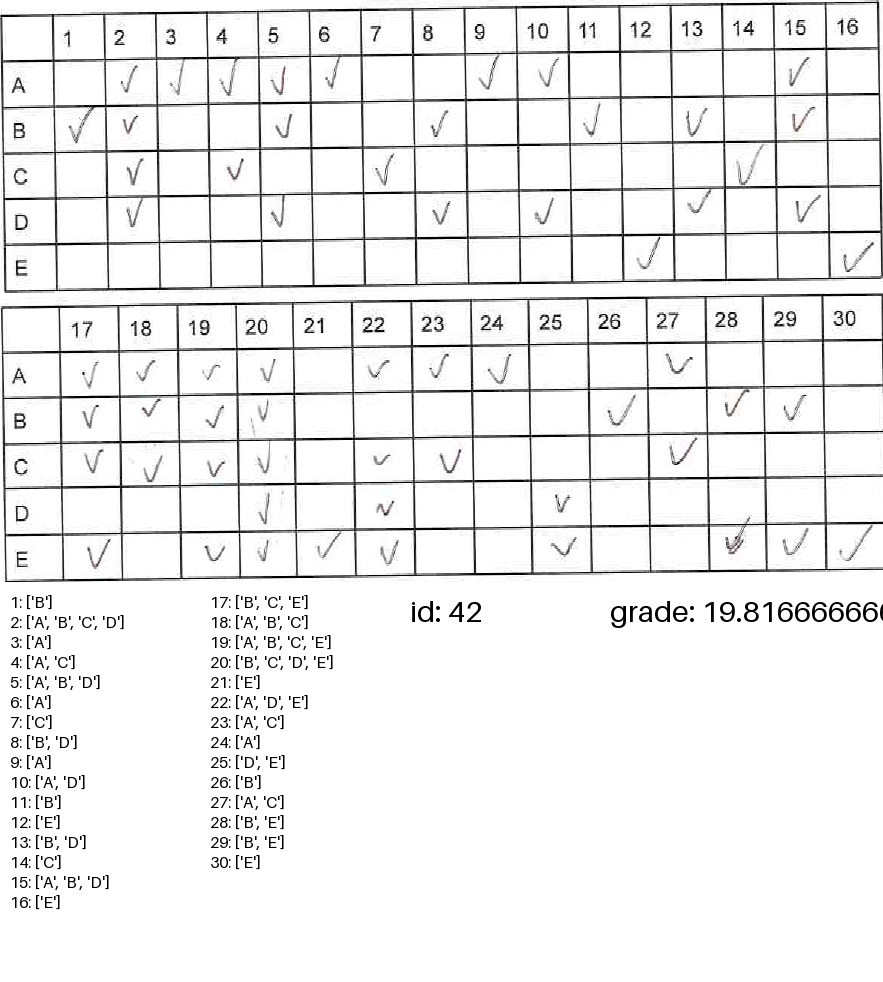 1 2 3 4 5 6 7 8 9 10 11 12 13 14 15 16
A ✓ ✓ ✓ ✓ ✓ ✓ ✓ ✓
B ✓ ✓ ✓ ✓ ✓ ✓ ✓
C ✓ ✓ ✓ ✓
D ✓ ✓ ✓ ✓ ✓ ✓
E ✓ ✓
17 18 19 20 21 22 23 24 25 26 27 28 29 30
A ✓ ✓ ✓ ✓ ✓ ✓ ✓ ✓
B ✓ ✓ ✓ ✓ ✓ ✓ ✓
C ✓ ✓ ✓ ✓ ✓ ✓ ✓
D ✓ ✓ ✓
E ✓ ✓ ✓ ✓ ✓ ✓ ✓ ✓ ✓
1: ['B']
2: ['A', 'B', 'C', 'D']
3: ['A']
4: ['A', 'C']
5: ['A', 'B', 'D']
6: ['A']
7: ['C']
8: ['B', 'D']
9: ['A']
10: ['A', 'D']
11: ['B']
12: ['E']
13: ['B', 'D']
14: ['C']
15: ['A', 'B', 'D']
16: ['E']
17: ['B', 'C', 'E']
18: ['A', 'B', 'C']
19: ['A', 'B', 'C', 'E']
20: ['B', 'C', 'D', 'E']
21: ['E']
22: ['A', 'D', 'E']
23: ['A', 'C']
24: ['A']
25: ['D', 'E']
26: ['B']
27: ['A', 'C']
28: ['B', 'E']
29: ['B', 'E']
30: ['E']
id: 42
grade: 19.816666666